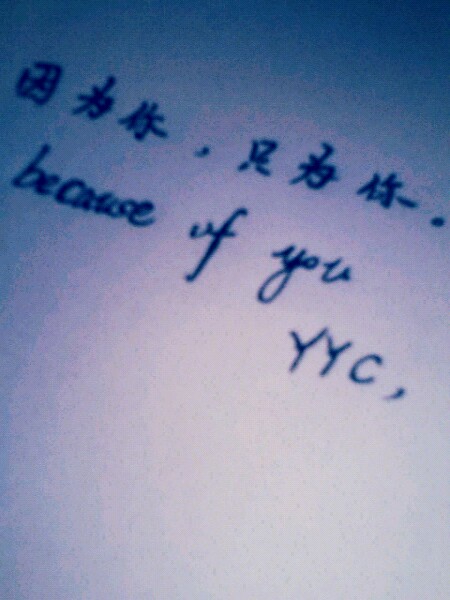 因为你，只为你。
because of you
YYC,